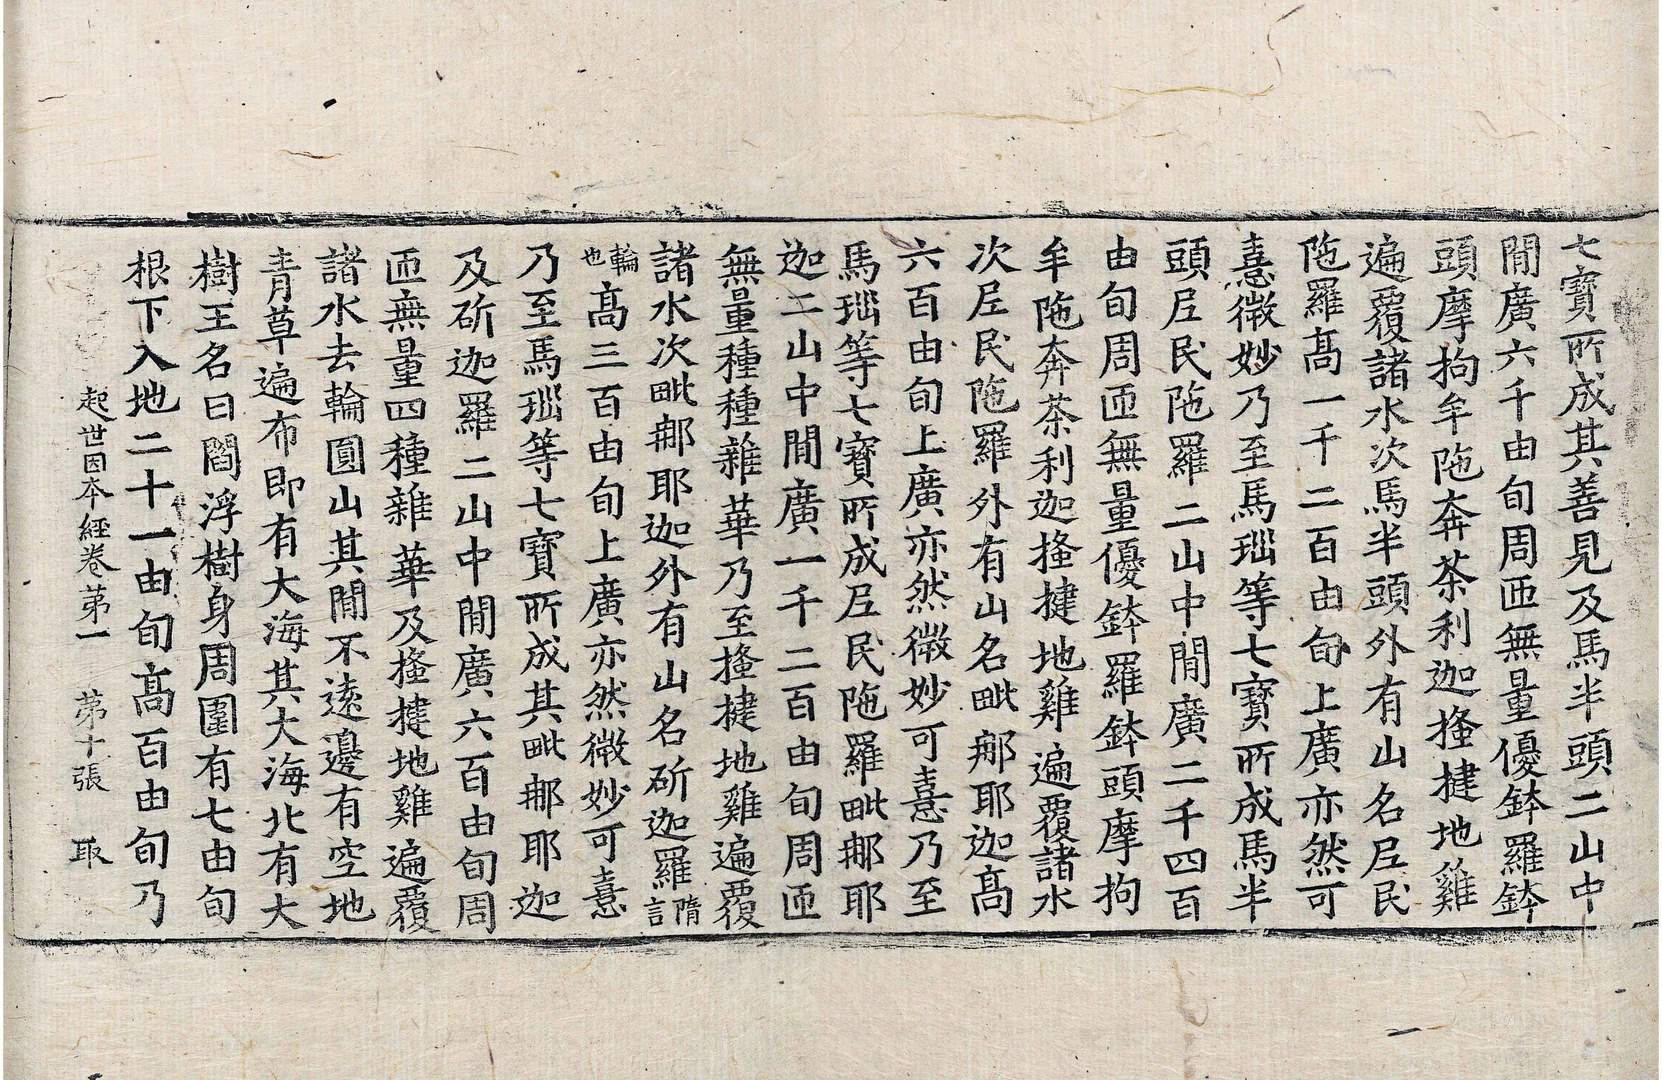 七寶所成其善見及馬半頭二山中
閒廣六千由旬周匝無量優鉢羅鉢
頭摩拘牟陁奔茶利迦搔揵地雞
遍覆諸水次馬半頭外有山名𡰱民
陁羅高一千二百由旬上廣亦然可
憙微妙乃至馬瑙等七寶所成馬半
頭𡰱民陁羅二山中閒廣二千四百
由旬周匝無量優鉢羅鉢頭摩拘
牟陁奔茶利迦搔揵地雞遍覆諸水
次𡰱民陁羅外有山名毗那耶迦高
六百由旬上廣亦然微妙可憙乃至
馬瑙等七寶所成𡰱民陁羅毗那耶
迦二山中閒廣一千二百由旬周匝
無量種種雜華乃至搔揵地雞遍覆
諸水次毗那耶迦外有山名斫迦羅隋言
輪也高三百由旬上廣亦然微妙可憙
乃至馬瑙等七寶所成其毗那耶迦
及斫迦羅二山中閒廣六百由旬周
匝無量四種雜華及搔揵地雞遍覆
諸水去輪圓山其閒不遠邊有空地
青草遍布即有大海其大海北有大
樹王名曰閻浮樹身周圍有七由旬
根下入地二十一由旬高百由旬乃
起世因本經卷第一 第十張 取